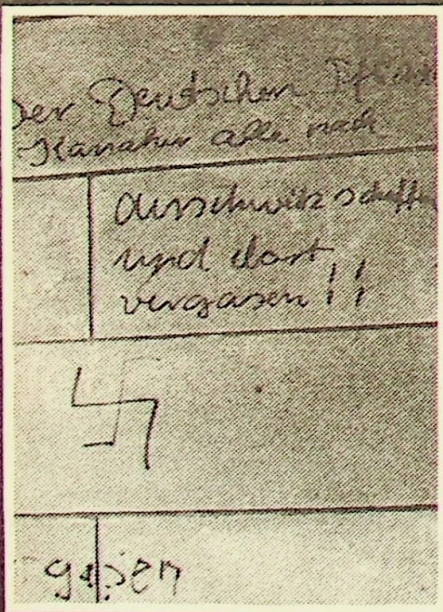 Der Deutschen
Kanaken alle nach
Ausschwitz schaffen
und dort
vergasen!!